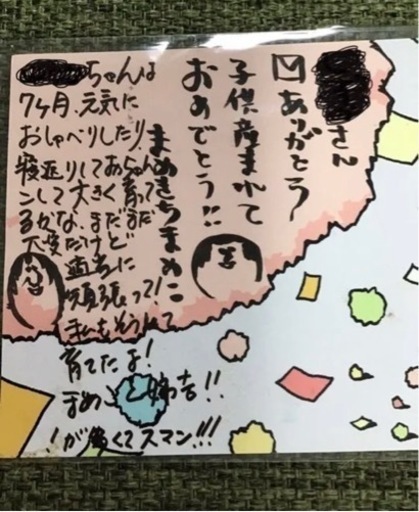 さん
凹ありがとう
子供産まれて
おめでとう!!
まめきちまめこ
ちゃんは
7ヶ月、元気に
おしゃべりしたり
寝返りしておちゃん
こして大きく育って
るかな、まだまだ
大変だけど
適当に
頑張って!
私もそうして
育てたよ!
まめこと姉吉!!
!が多くてスマン!!!